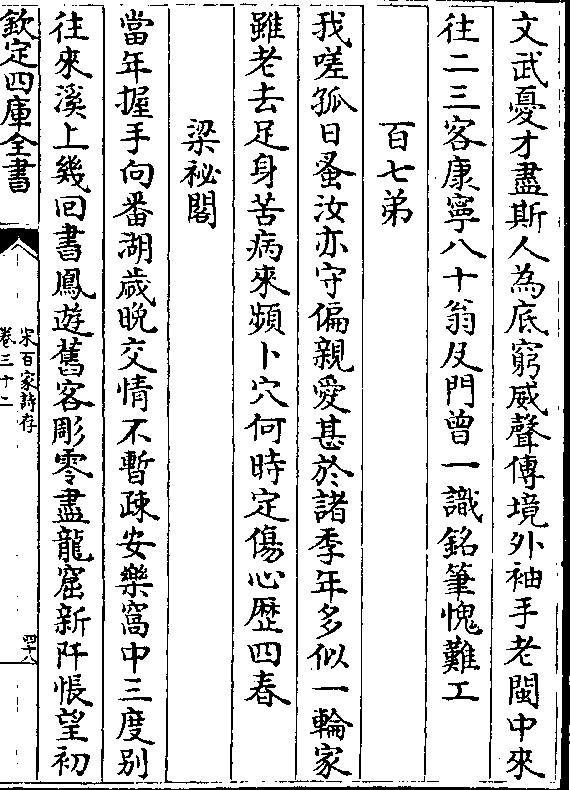 文武憂才盡斯人為底窮威聲傳境外袖手老閩中來
往二三客康寧八十翁及門曾一識銘筆愧難工
百七弟
我嗟孤日蚤汝亦守偏親愛甚於諸季年多似一輪家
雖老去足身苦病來頻卜穴何時定傷心歴四春
梁祕閣
當年握手向番湖歲晚交情不暫疎安樂窩中三度别
往來溪上幾回書鳳遊舊客彫零盡龍窟新阡悵望初
欽定四庫全書
宋百家詩存
卷三十二
四十八